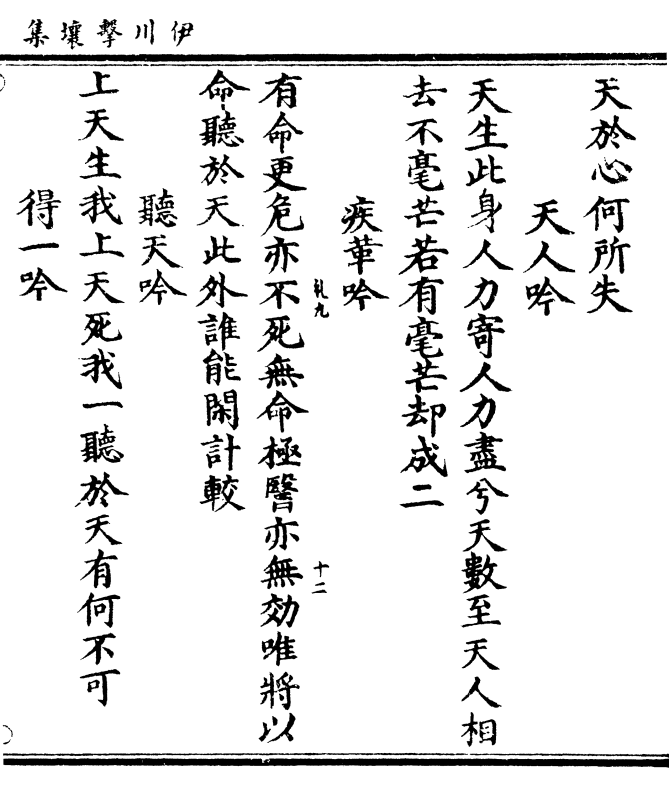 伊川擊壤集
天於心何所失
天人吟
天生此身人力寄人力盡兮天數至天人相
去不毫芒若有毫芒却成二
疾革吟
有命更危亦不死無命極醫亦無効唯將以
命聽於天此外誰能閑計較
聽天吟
上天生我上天死我一聽於天有何不可
得一吟
十二